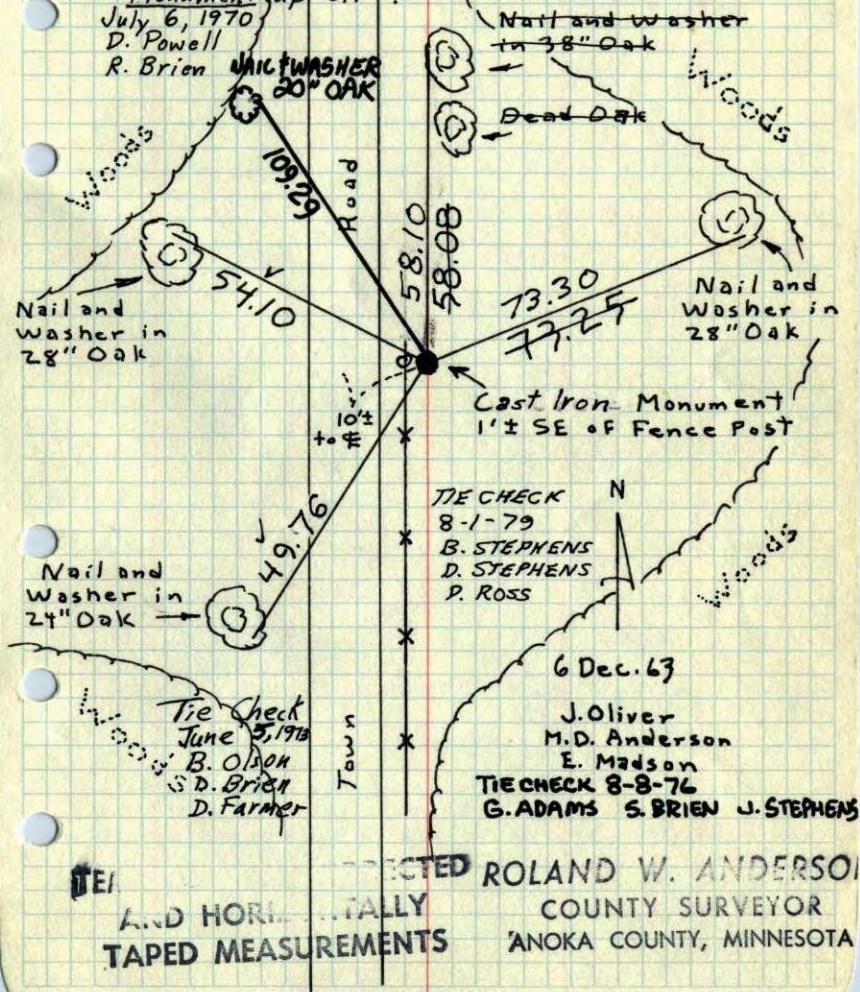 July 6, 1970
D. Powell
R. Brien
NAIL & WASHER
20" OAK
Nail and Washer
in 38" Oak
Dead Oak
Woods
Woods
109.29
Road
58.10
58.08
54.10
73.30
Nail and
Washer in
28" Oak
Nail and
Washer in
28" Oak
Cast Iron Monument
1'± SE of Fence Post
10'±
to ℄
49.76
TIE CHECK
8-1-79
B. STEPHENS
D. STEPHENS
D. ROSS
N
Woods
Nail and
Washer in
24" Oak
6 Dec. 63
J. Oliver
M.D. Anderson
E. Madson
TIE CHECK 8-8-76
G. ADAMS S. BRIEN J. STEPHENS
Woods
Tie Check
June 5, 1973
B. Olson
D. Brien
D. Farmer
Town
AND
TAPED MEASUREMENTS
ROLAND W. ANDERSO
COUNTY SURVEYOR
ANOKA COUNTY, MINNESOTA